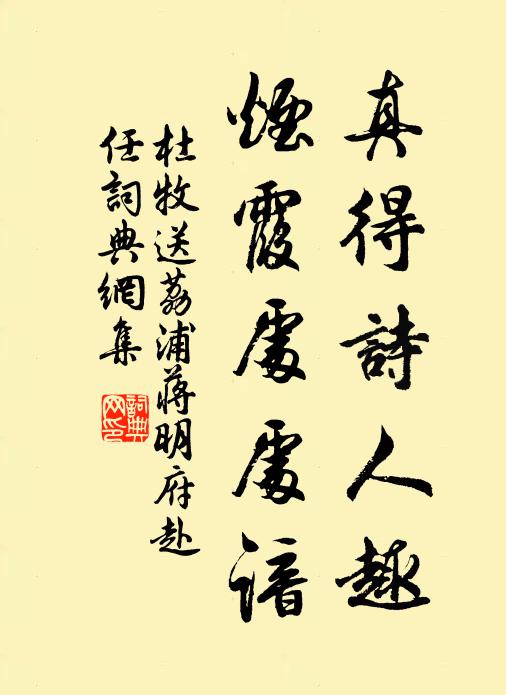 真得詩人趣
煙霞處處諳
杜牧送荔浦蔣明府赴
任詞典網集
詞典
网印